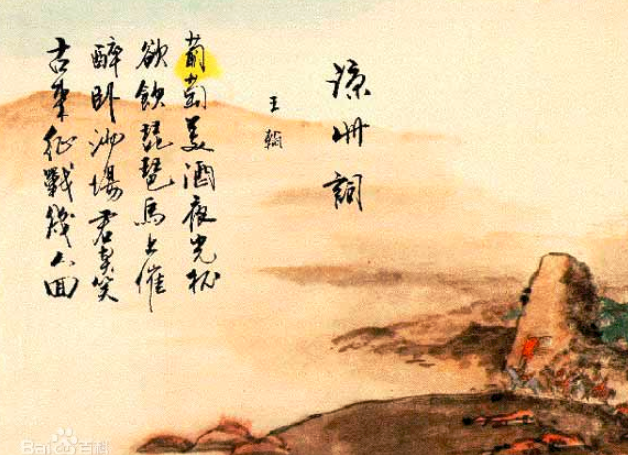 涼州詞
王翰
葡萄美酒夜光杯
欲飲琵琶馬上催
醉卧沙場君莫笑
古來征戰幾人回
Bai百科